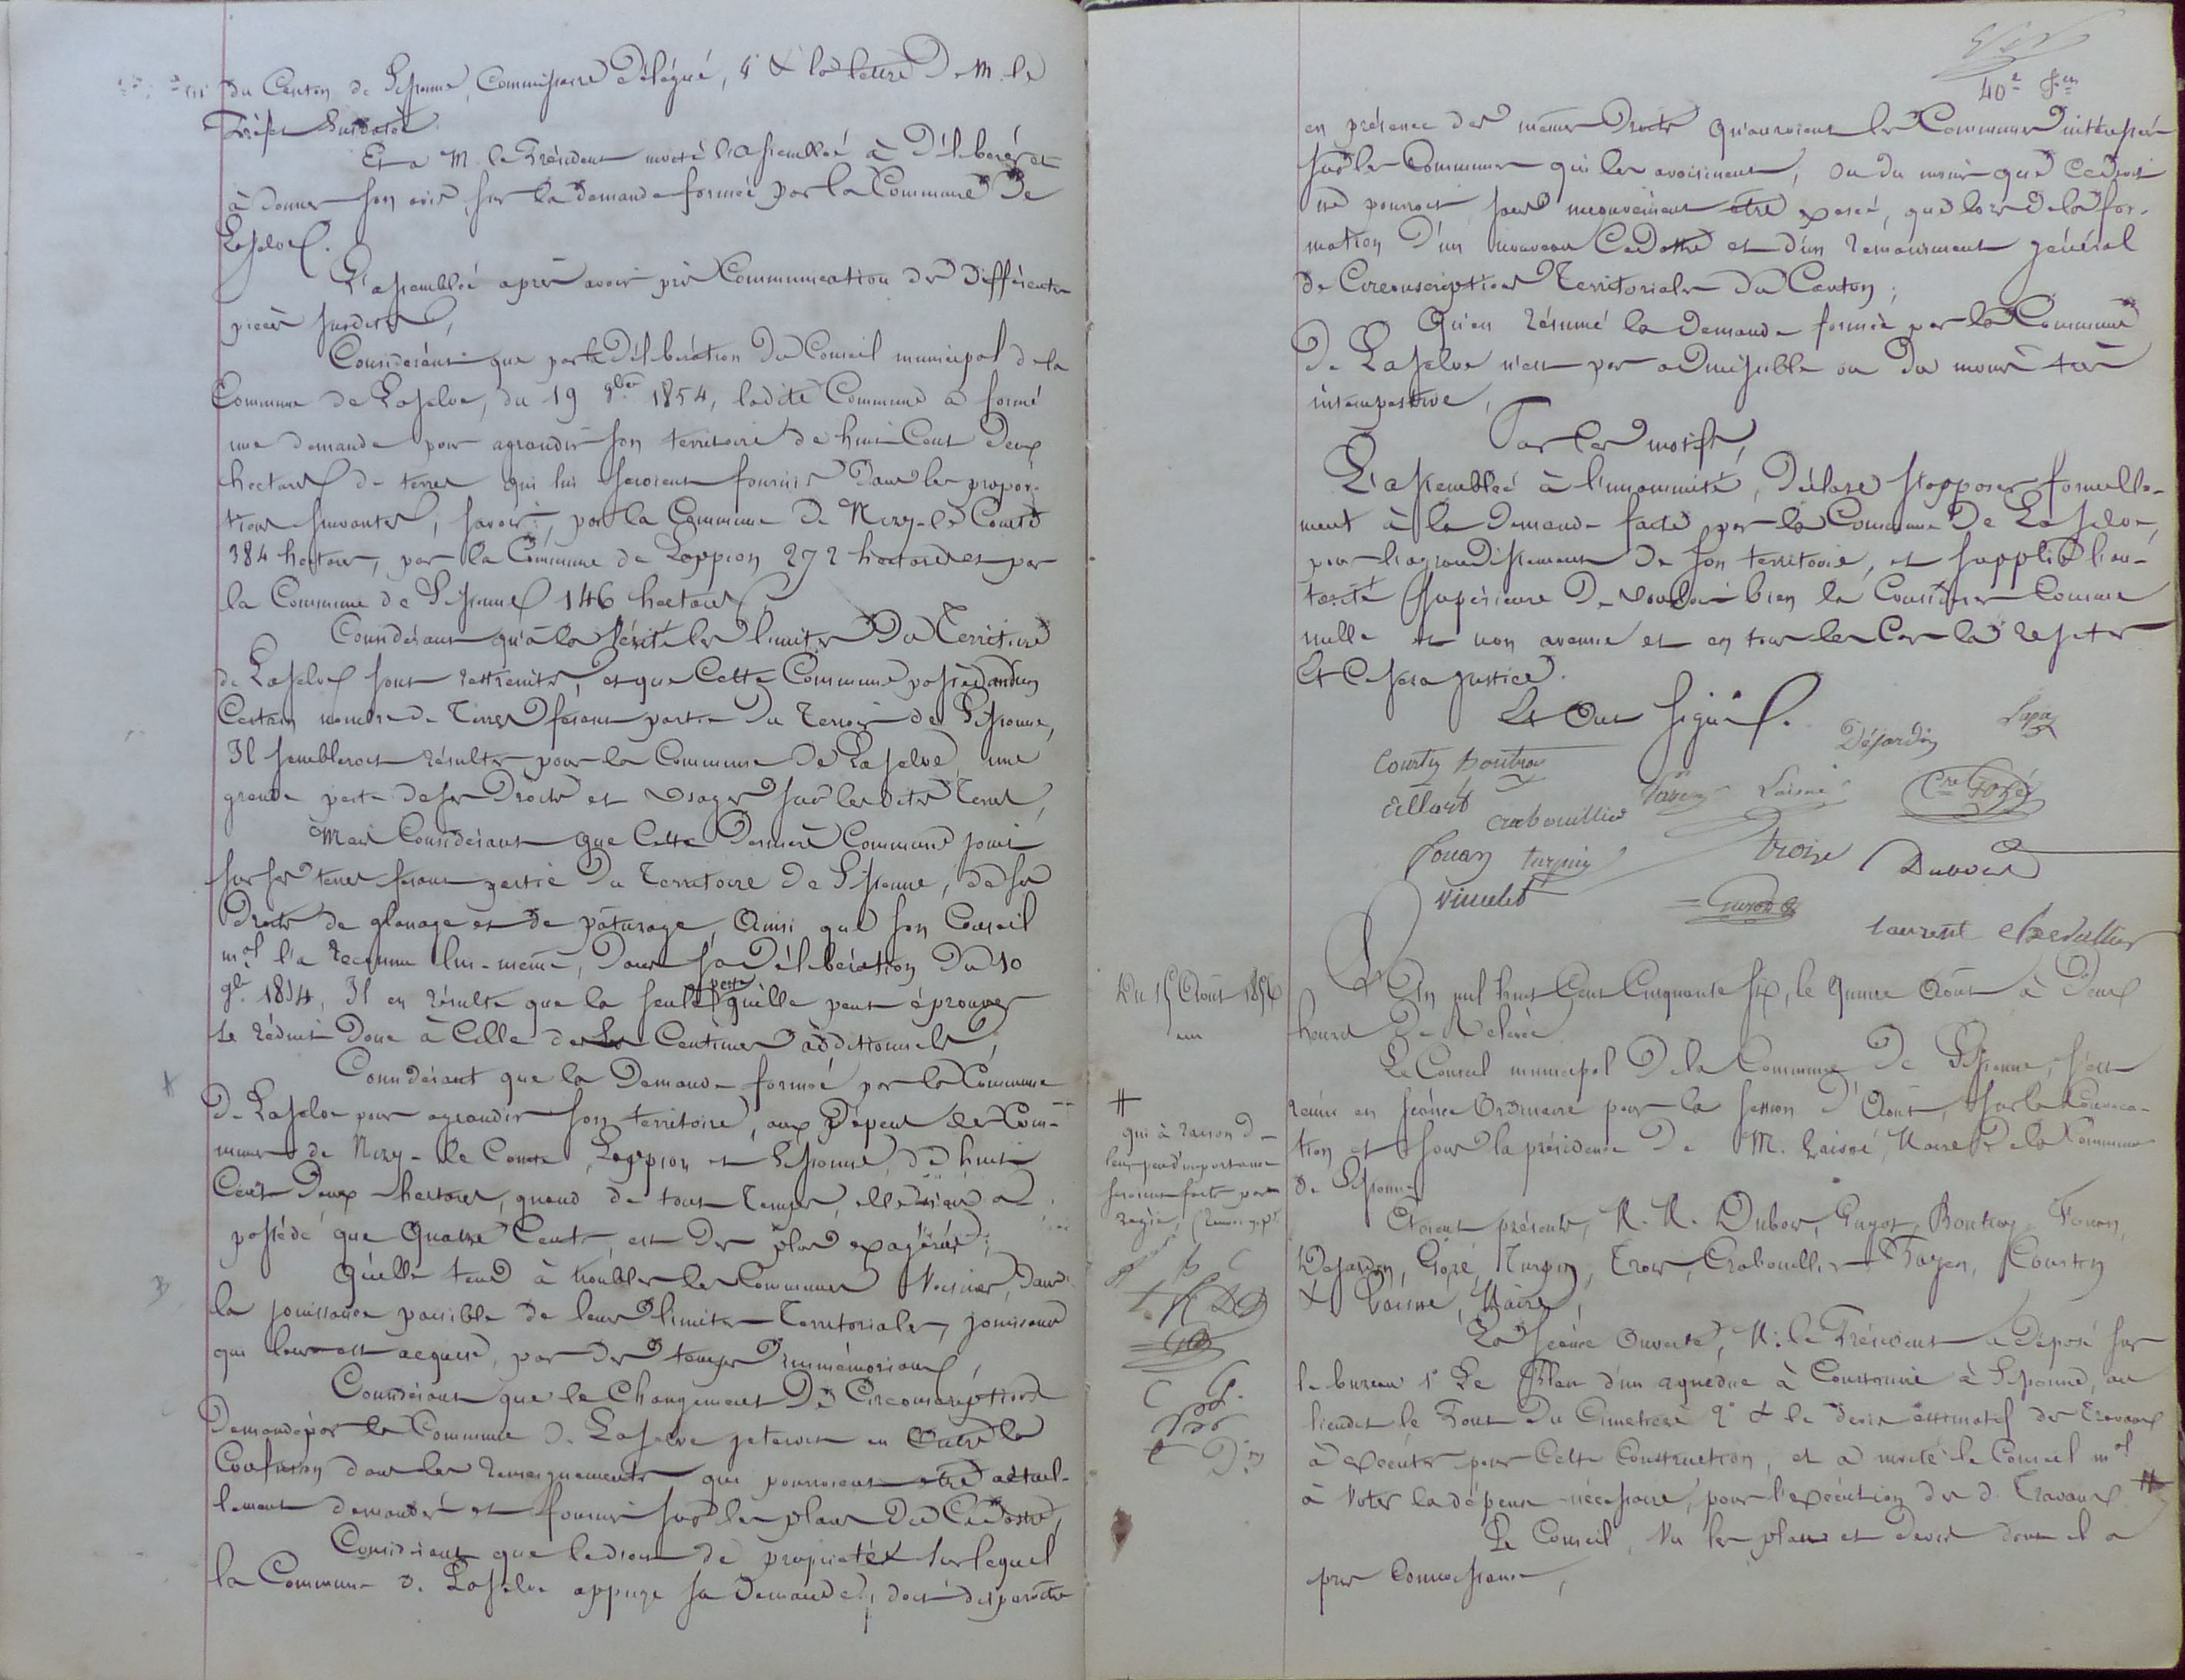 du Canton de Sissonne, Commissaire délégué, 4° & la lettre de M. le
Préfet susdatée.
Et a M. le Président invité l'assemblée à délibérer et
à donner son avis, sur la demande formée par la Commune de
Laselve.
L'assemblée après avoir pris Communication des différentes
pièces susdites,
Considérant que par la délibération du Conseil municipal de la
Commune de Laselve, du 19 9bre 1854, ladite Commune a formé
une demande pour agrandir son territoire de huit Cent deux
hectares de terres qui lui seroient fournis dans les propor-
tions suivantes, savoir: par la Commune de Nizy-le-Comte
384 hectares, par la Commune de Lappion 272 hectares et par
la Commune de Sissonne 146 hectares,
Considérant qu'à la vérité les limites du Territoire
de Laselve sont restreintes, et que Cette Commune possédant un
Certain nombre de Terres faisant partie du Terroir de Sissonne,
Il sembleroit résulter pour la Commune de Laselve une
grande perte de ses droits et usages sur lesdites Terres,
Mais Considérant que Cette dernière Commune jouit
sur ses terres faisant partie du Territoire de Sissonne, de ses
droits de glanage et de pâturage, Ainsi que son Conseil
mal l'a reconnu lui-même, dans sa délibération du 10
9bre 1854, Il en résulte que la seule perte qu'elle peut éprouver
se réduit donc à Celle des Centimes additionnels,
Considérant que la Demande formée par la Commune
de Laselve pour agrandir son territoire, aux dépens des Com-
munes de Nizy-le-Comte, Lappion et Sissonne, de huit
Cent deux hectares, quand de tout temps, elle n'en a
possédé que Quatre Cents, est des plus exagérées;
Qu'elle tend à troubler les Communes Voisines, dans
la jouissance paisible de leurs limites Territoriales, jouissance
qui leur est acquise, par des temps immémoriaux,
Considérant que le Changement de Circonscription
demandé par la Commune de Laselve jeteroit en Outre la
Confusion dans les renseignements qui pourroient être actuel-
lement demandés et fournis sur les plans du Cadastre,
Considérant que le droit de propriété sur lequel
la Commune de Laselve appuye sa demande, doit disparoître
40e Fet
en présence des mêmes droits qu'auroient les Communes intéressées
sur les Communes qui les avoisinent, ou du moins que ce droit
ne pourroit sans inconvénient être exercé, que lors de la for-
mation d'un nouveau Cadastre et d'un remaniement général
de Circonscriptions Territoriales du Canton;
Qu'en résumé la Demande formée par la Commune
de Laselve n'est pas admissible ou du moins très
intempestive,
Par ces motifs,
L'assemblée à l'unanimité, déclare s'opposer formelle-
ment à la demande faite par la Commune de Laselve,
pour l'agrandissement de son territoire, et supplie l'au-
torité supérieure de vouloir bien la Considérer Comme
nulle et non avenue et en tous les Cas la rejeter
Et Ce sera justice.
Et Ont signé.
Courtin Boutroy
Déjardin
Lapa
Eillart
Crabouillier
Fayen
Laisné
Cre Gozé
Fouan
turpin
troize
Dubois
Vincelet
Guyot
Laurent
Chevallier
Du 15 Août 1856
L'an mil huit Cent Cinquante six, le quinze Août à deux
heures de relevée
Le Conseil municipal de la Commune de Sissonne, s'est
réuni en séance Ordinaire pour la session d'Août, sur la Convoca-
tion et sous la présidence de M. Laisné, Maire de la Commune
de Sissonne
Etoient présents, M.M. Dubois, Guyot, Boutroy, Fouan,
Déjardin, Gozé, Turpin, Troize, Crabouillier, Fayen, Courtin
& Laisné, Maire,
La séance Ouverte, M. le Président a déposé sur
le bureau 1° Le Plan d'un aqueduc à Construire à Sissonne, au
lieudit le Pont du Cimetière 2° & le devis estimatif des Travaux
à exécuter pour Cette Construction, et a invité le Conseil mal
à Voter la dépense nécessaire, pour l'exécution des d. Travaux #
Le Conseil, Vu les plans et devis dont il a
pris Connoissance,
#
qui à raison de
leur peu d'importance
seroient faits par
régie,